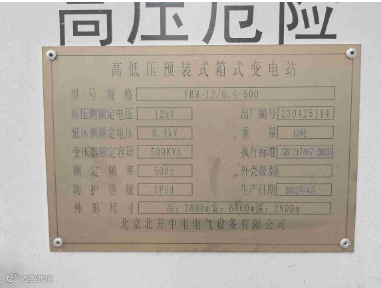 高压危险
高低压预装式箱式变电站
型号规格 YBM-12/0.4-500
高压侧额定电压 12kV 出厂编号 230425114
低压侧额定电压 0.4kV 重量
变压器额定容量 500KVA 执行标准 GB/T17467-2020
额定频率 50Hz 外壳级别
防护等级 IP54 生产日期 2023年4月
外形尺寸 高:3800m宽:6300m深:2800m
北京北开中电电气设备有限公司